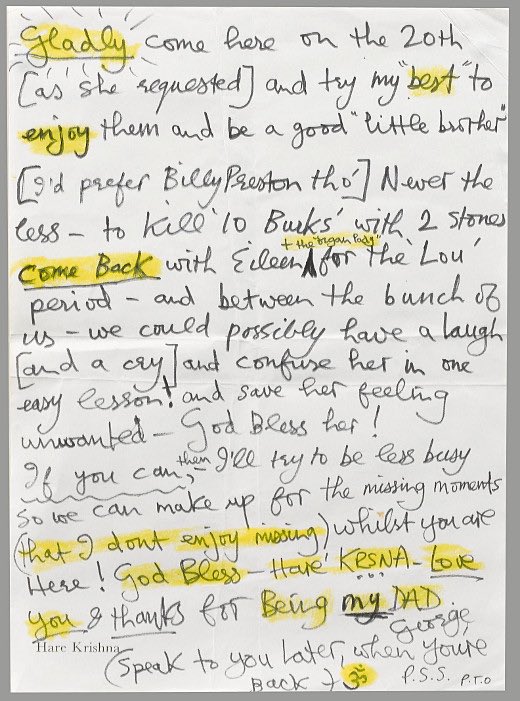 Gladly come here on the 20th
[as she requested] and try my "best" to
enjoy them and be a good "little brother"
[I'd prefer Billy Preston tho'] Never the
less – to kill '10 Burks' with 2 stones
+ the 'organ lady'
Come Back with Eileen for the 'Lou'
period – and between the bunch of
us – we could possibly have a laugh
[and a cry] and confuse her in one
easy lesson! and save her feeling
unwanted – God Bless her!
If you can, – then I'll try to be less busy
so we can make up for the missing moments
(that I dont enjoy missing) whilst you are
Here! God Bless – Hare KRSNA – Love
you & thanks for Being my DAD
George
Hare Krishna
(Speak to you later, when you're
back + ॐ P.S.S. P.T.O